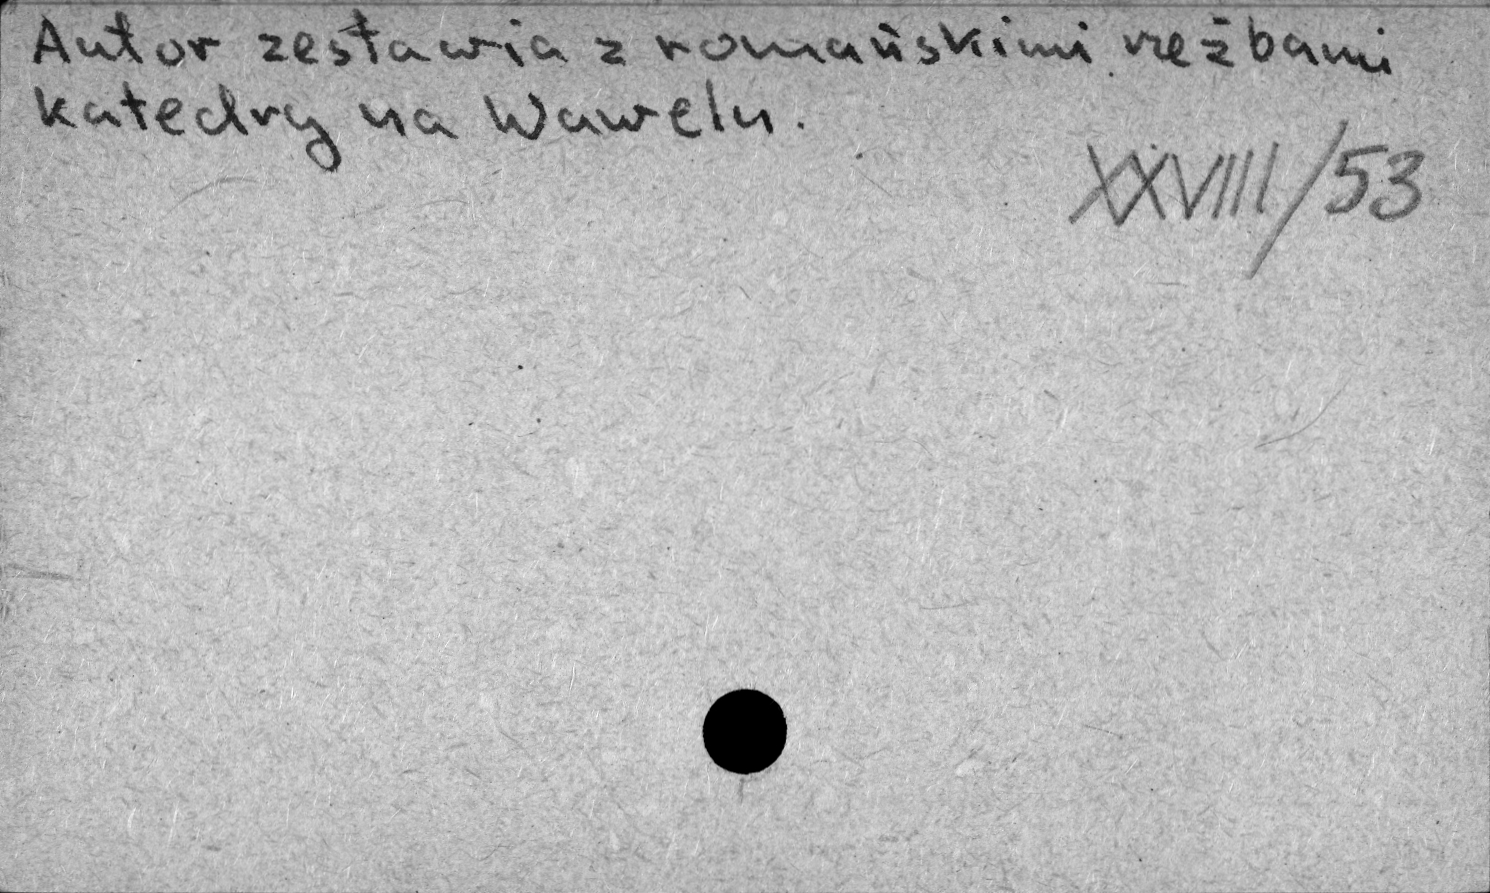 Autor zestawia z romańskimi rzeźbami
katedry na Wawelu.
XXVIII/53